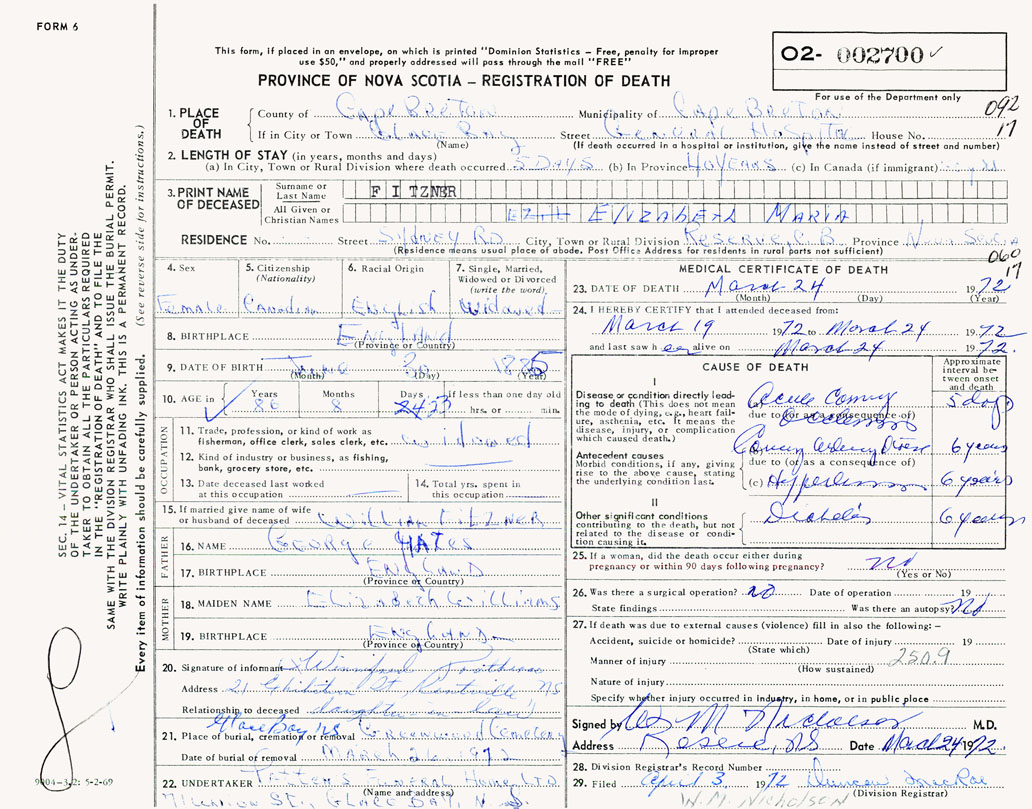 FORM 6
This form, if placed in an envelope, on which is printed "Dominion Statistics – Free, penalty for improper
use $50," and properly addressed will pass through the mail "FREE"
PROVINCE OF NOVA SCOTIA – REGISTRATION OF DEATH
O2- 002700 ✓
For use of the Department only
092
17
1. PLACE OF DEATH
County of Cape Breton Municipality of Cape Breton
If in City or Town Glace Bay Street General Hospital House No.
(Name) (If death occurred in a hospital or institution, give the name instead of street and number)
2. LENGTH OF STAY (in years, months and days)
(a) In City, Town or Rural Division where death occurred 5 DAYS (b) In Province 40 YEARS (c) In Canada (if immigrant)
3. PRINT NAME OF DECEASED
Surname or Last Name FITZNER
All Given or Christian Names ELIZABETH MARIA
RESIDENCE No. Street SYDNEY RD City, Town or Rural Division RESERVE C.B. Province Nova Scotia
(Residence means usual place of abode. Post Office Address for residents in rural parts not sufficient)
060
17
4. Sex Female
5. Citizenship (Nationality) Canadian
6. Racial Origin English
7. Single, Married, Widowed or Divorced (write the word) Widowed
8. BIRTHPLACE England
(Province or Country)
9. DATE OF BIRTH June 30 1885
(Month) (Day) (Year)
10. AGE in Years 86 Months 8 Days 23 If less than one day old hrs. or min.
OCCUPATION
11. Trade, profession, or kind of work as
fisherman, office clerk, sales clerk, etc. Widowed
12. Kind of industry or business, as fishing,
bank, grocery store, etc.
13. Date deceased last worked
at this occupation
14. Total yrs. spent in
this occupation
15. If married give name of wife
or husband of deceased William FITZNER
FATHER
16. NAME George YATES
17. BIRTHPLACE ENGLAND
(Province or Country)
MOTHER
18. MAIDEN NAME Elizabeth Williams
19. BIRTHPLACE ENGLAND
(Province or Country)
20. Signature of informant Winnifred
Address 21 St Kentville NS
Relationship to deceased daughter in law
Glace Bay NS
21. Place of burial, cremation or removal Greenwood Cemetery
Date of burial or removal March 26 1972
22. UNDERTAKER Funeral Home LTD
(Name and address)
Union St., Glace Bay, N.S.
MEDICAL CERTIFICATE OF DEATH
23. DATE OF DEATH March 24 1972
(Month) (Day) (Year)
24. I HEREBY CERTIFY that I attended deceased from:
March 19 1972 to March 24 1972
and last saw her alive on March 24 1972.
CAUSE OF DEATH
Approximate interval between onset and death
I
Disease or condition directly leading to death (This does not mean the mode of dying, e.g., heart failure, asthenia, etc. It means the disease, injury, or complication which caused death.)
(a) Acute Coronary Occlusion 5 days
due to (or as a consequence of)
Antecedent causes
Morbid conditions, if any, giving rise to the above cause, stating the underlying condition last.
Coronary Artery Disease 6 years
due to (or as a consequence of)
(c) Hypertension 6 years
II
Other significant conditions contributing to the death, but not related to the disease or condition causing it.
Diabetes 6 years
25. If a woman, did the death occur either during
pregnancy or within 90 days following pregnancy? no
(Yes or No)
26. Was there a surgical operation? no Date of operation 19
State findings Was there an autopsy? No
27. If death was due to external causes (violence) fill in also the following:–
Accident, suicide or homicide? Date of injury 19
(State which)
Manner of injury 250.9
(How sustained)
Nature of injury
Specify whether injury occurred in industry, in home, or in public place
Signed by M Nicholson M.D.
Address Reserve, NS Date March 24 1972.
28. Division Registrar's Record Number
29. Filed April 3 1972 Duncan MacRae
(Division Registrar)
W. M. Nicholson
SEC. 14 – VITAL STATISTICS ACT MAKES IT THE DUTY
OF THE UNDERTAKER OR PERSON ACTING AS UNDER-
TAKER TO OBTAIN ALL THE PARTICULARS REQUIRED
IN THE "REGISTRATION OF DEATH" AND TO FILE THE
SAME WITH THE DIVISION REGISTRAR WHO SHALL ISSUE THE BURIAL PERMIT.
WRITE PLAINLY WITH UNFADING INK. THIS IS A PERMANENT RECORD.
Every item of information should be carefully supplied. (See reverse side for instructions.)
9004-3.2: 5-2-69